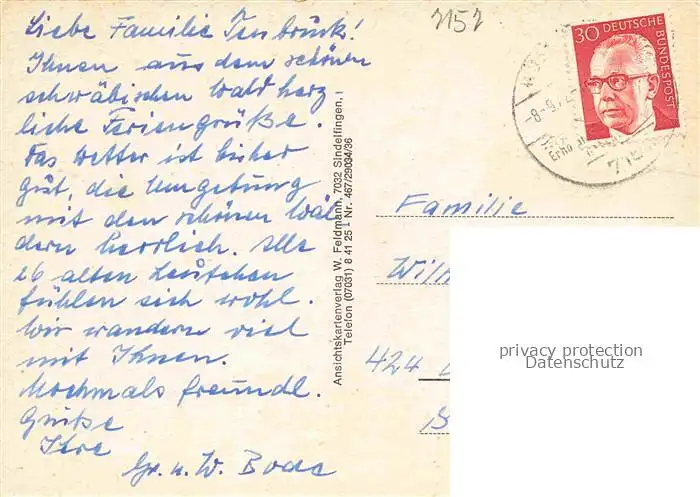 Liebe Familie Tenbrück!
Ihnen aus dem schönen
schwäbischen Wald herz
liche Feriengrüße.
Das Wetter ist bisher
gut, die Umgebung
mit den schönen Wäl
dern herrlich. Alle
26 alten Leutchen
fühlen sich wohl.
Wir wandern viel
mit Ihnen.
Nochmals freundl.
Grüße
Ihre
Gr. u. W. Bode
Ansichtskartenverlag W. Feldmann, 7032 Sindelfingen,
Telefon (07031) 8 41 25 Nr. 467/29034/36
7157
30 DEUTSCHE BUNDESPOST
-8-9.
Erho
715
Familie
Wil
424
privacy protection
Datenschutz